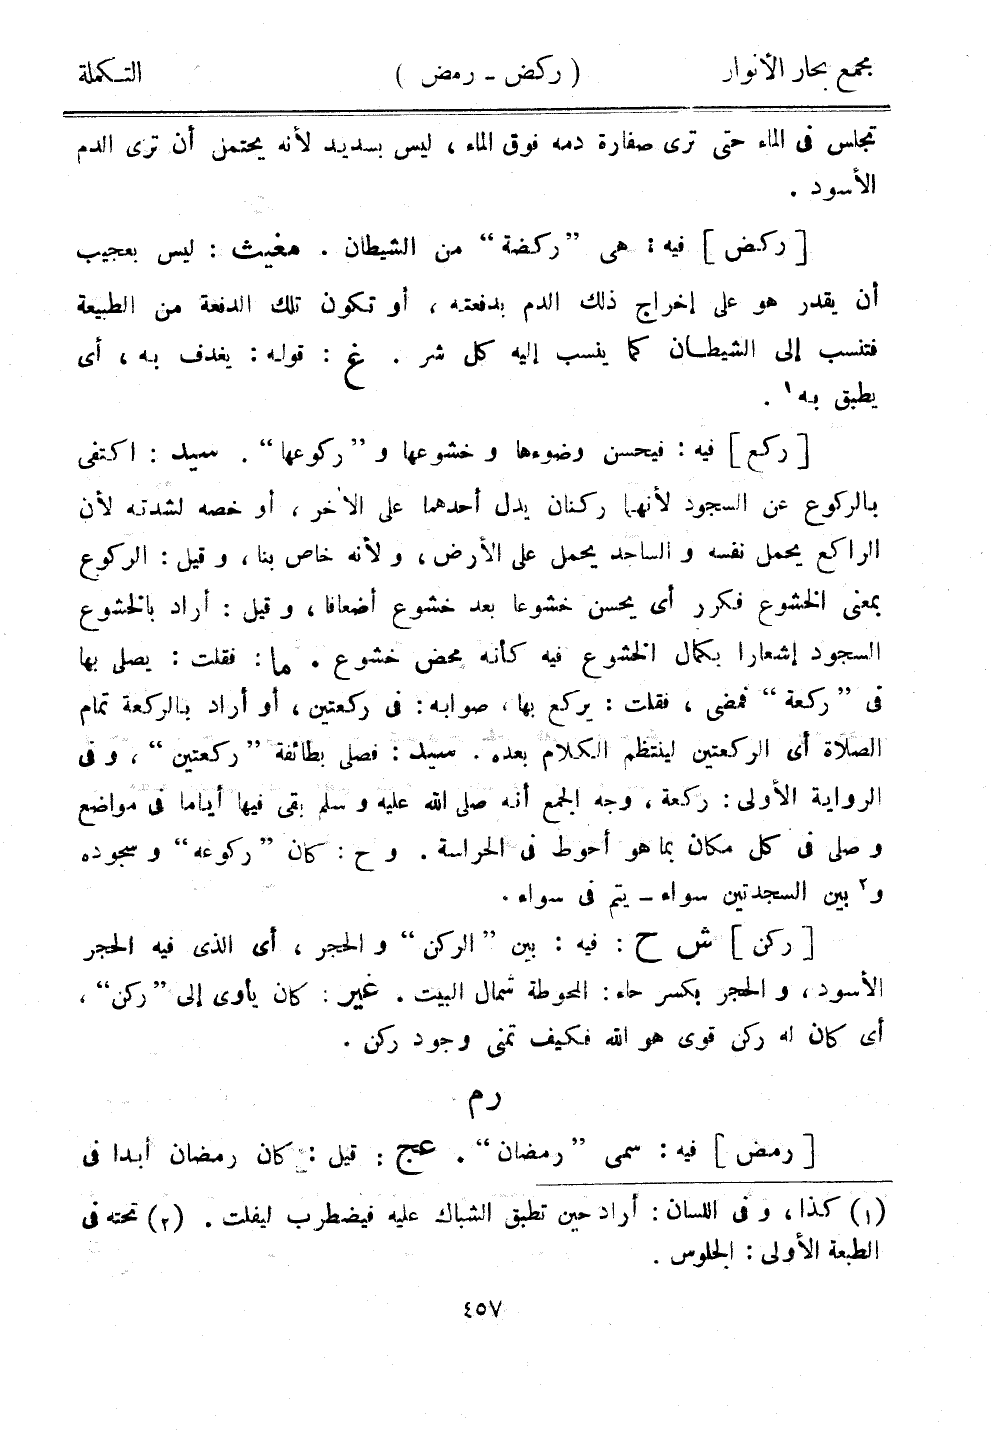 مجمع بحار الأنوار ( ركض - رمض ) التكملة
تجلس فى الماء حتى ترى صفارة دمه فوق الماء ، ليس بسديد لأنه يحتمل أن ترى الدم
الأسود .
[ ركض ] فيه : هى ”ركضة“ من الشيطان . مغيث : ليس بعجيب
أن يقدر هو على إخراج ذلك الدم بدفعته ، أو تكون تلك الدفعة من الطبيعة
فتنسب إلى الشيطان كما ينسب إليه كل شر . غ : قوله : يغدف به ، أى
يطبق به ١ .
[ ركع ] فيه : فيحسن وضوءها و خشوعها و ”ركوعها“ . سيد : اكتفى
بالركوع عن السجود لأنهما ركنان يدل أحدهما على الآخر ، أو خصه لشدته لأن
الراكع يحمل نفسه و الساجد يحمل على الأرض ، و لأنه خاص بنا ، و قيل : الركوع
بمعنى الخشوع فكرر أى يحسن خشوعا بعد خشوع أضعافا ، و قيل : أراد بالخشوع
السجود إشعارا بكمال الخشوع فيه كأنه محض خشوع . ما : فقلت : يصلى بها
فى ”ركعة“ فمضى ، فقلت : يركع بها ، صوابه : فى ركعتين ، أو أراد بالركعة تمام
الصلاة أى الركعتين لينتظم الكلام بعده . سيد : فصلى بطائفة ”ركعتين“ ، و فى
الرواية الأولى : ركعة ، وجه الجمع أنه صلى الله عليه و سلم بقى فيها أياما فى مواضع
و صلى فى كل مكان بما هو أحوط فى الحراسة . و ح : كان ”ركوعه“ و سجوده
و ٢ بين السجدتين سواء - يتم فى سواء .
[ ركن ] ش ح : فيه : بين ”الركن“ و الحجر ، أى الذى فيه الحجر
الأسود ، و الحجر بكسر حاء : المحوطة شمال البيت . غير : كان يأوى إلى ”ركن“ ،
أى كان له ركن قوى هو الله فكيف تمنى وجود ركن .
رم
[ رمض ] فيه : سمى ”رمضان“ . عج : قيل : كان رمضان أبدا فى
(١) كذا ، و فى اللسان : أراد حين تطبق الشباك عليه فيضطرب ليفلت . (٢) تحته فى
الطبعة الأولى : الجلوس .
٤٥٧